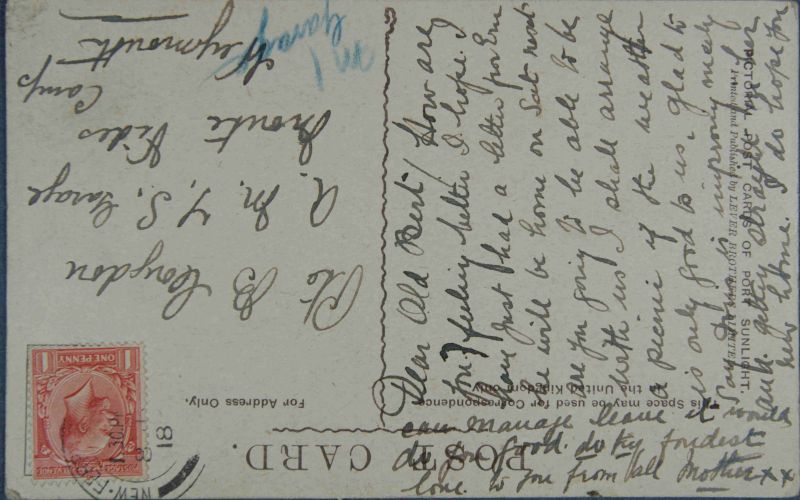 POST CARD.
This Space may be used for Correspondence
to the United Kingdom only.
For Address Only.
PICTORIAL POST CARDS OF PORT SUNLIGHT.
Printed and Published by LEVER BROTHERS LIMITED
Dear Old Bert/ How are
you? feeling better I hope. I
have just had a letter from Ern
he will be home on Sat next
are you going to be able to be
with us I shall arrange
a picnic if the weather
is only good to us. glad to
say Doris is improving nicely
and getting straight in her
new home. I do hope you
can manage leave it would
do you good. fondest
love to you from all Mother xx
Pte B Congdon
A. M. T. S. Garage
Monte Video
Camp
Weymouth
M/
Garage
POSTAGE REVENUE
ONE PENNY
1 1
NEW
18